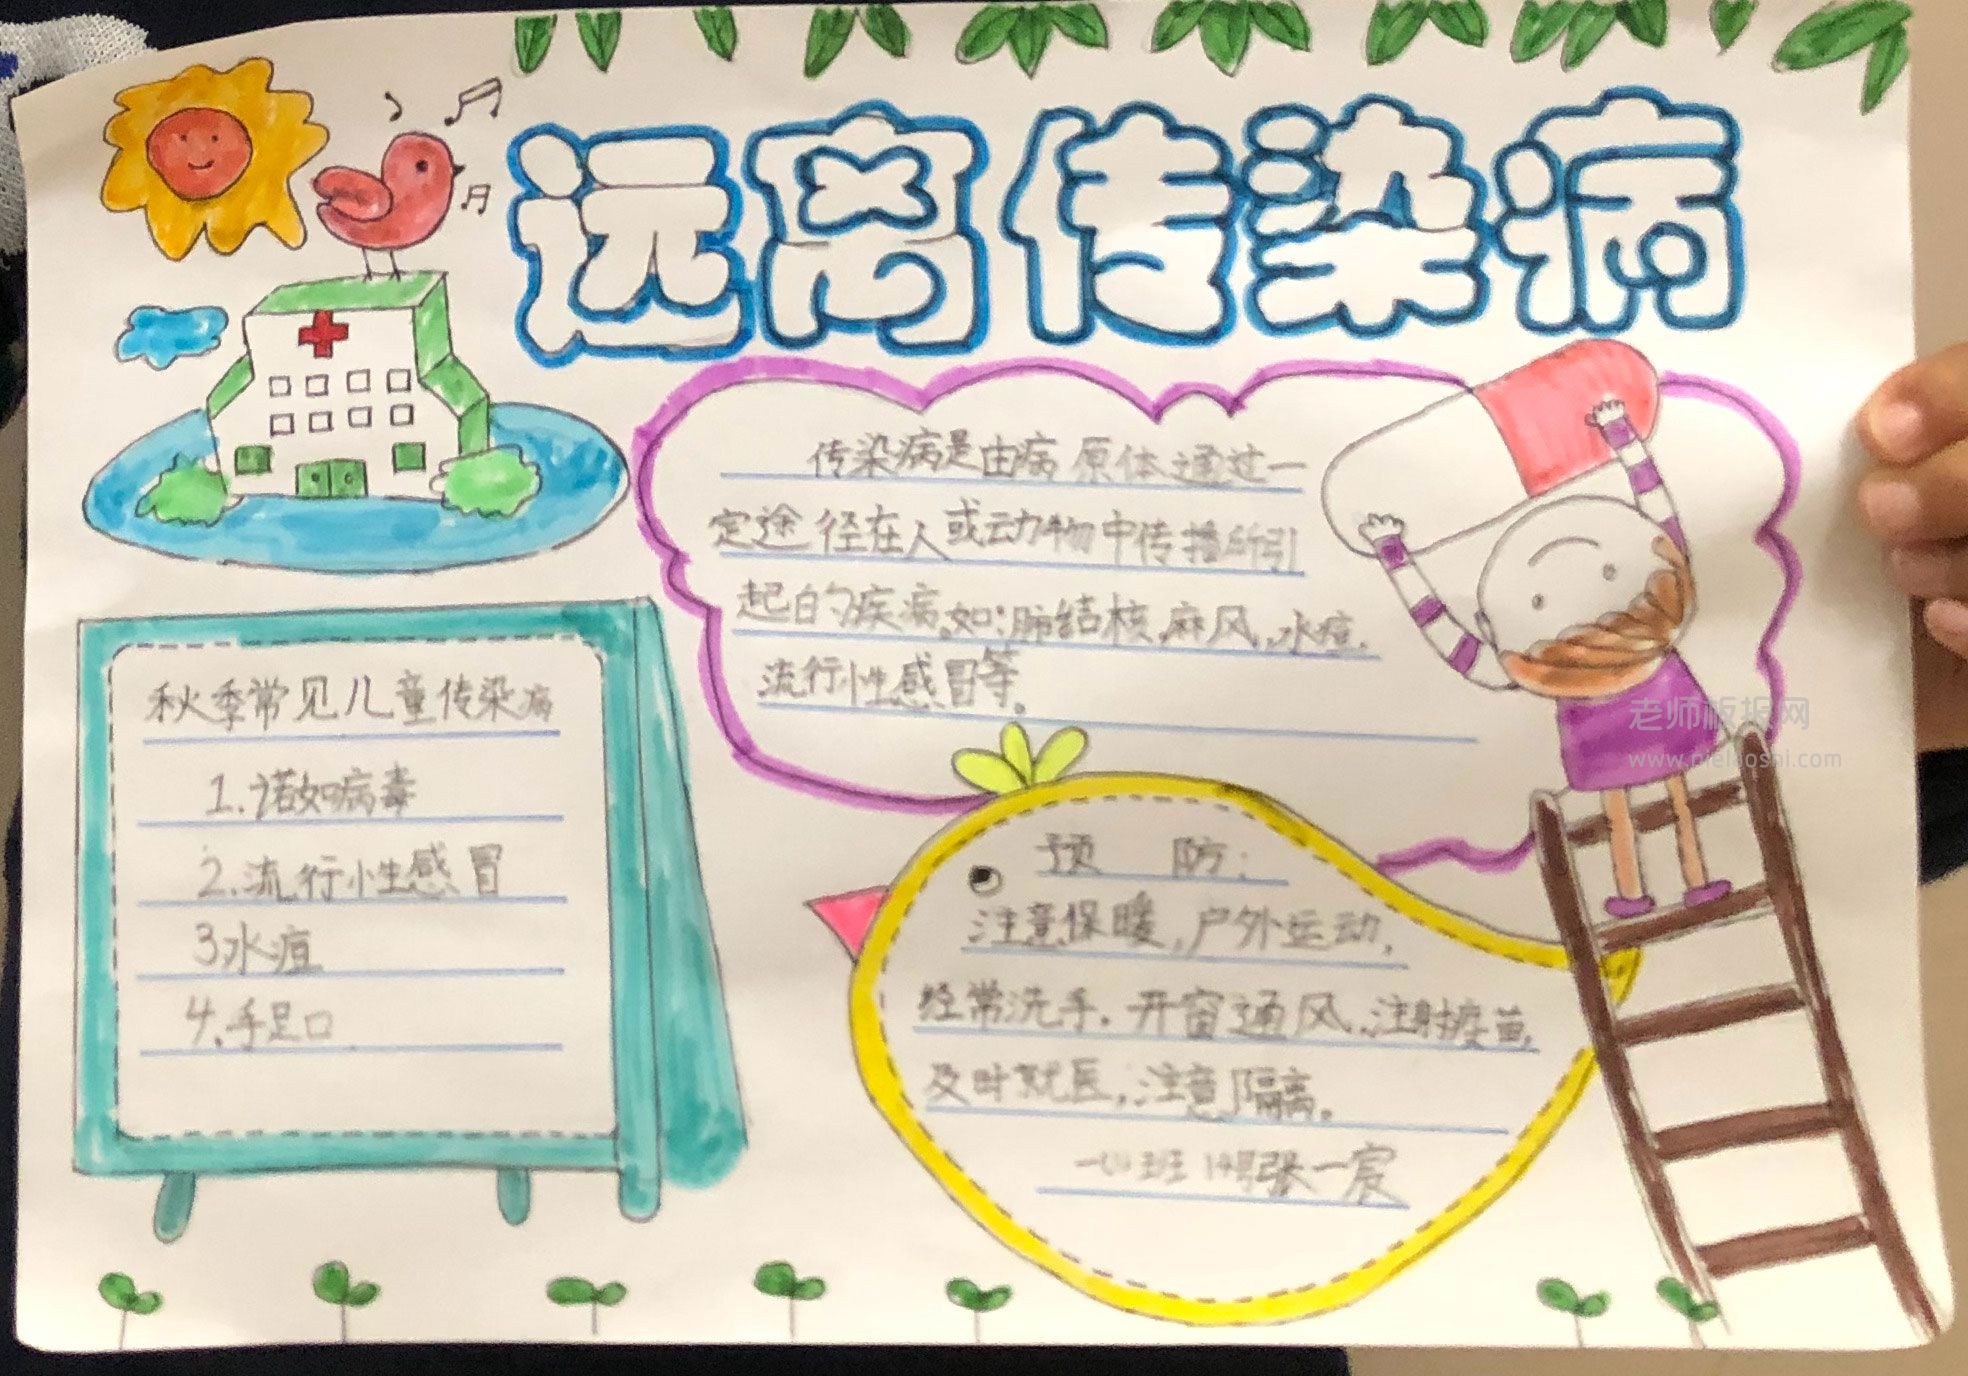 远离传染病
传染病是由病原体通过一
定途径在人或动物中传播所引
起的疾病。如:肺结核,麻风,水痘.
流行性感冒等。
秋季常见儿童传染病
1.诺如病毒
2.流行性感冒
3水痘
4.手足口
预 防:
注意保暖,户外运动,
经常洗手.开窗通风.注射疫苗,
及时就医,注意隔离。
班 14号张一宸
老师板报网